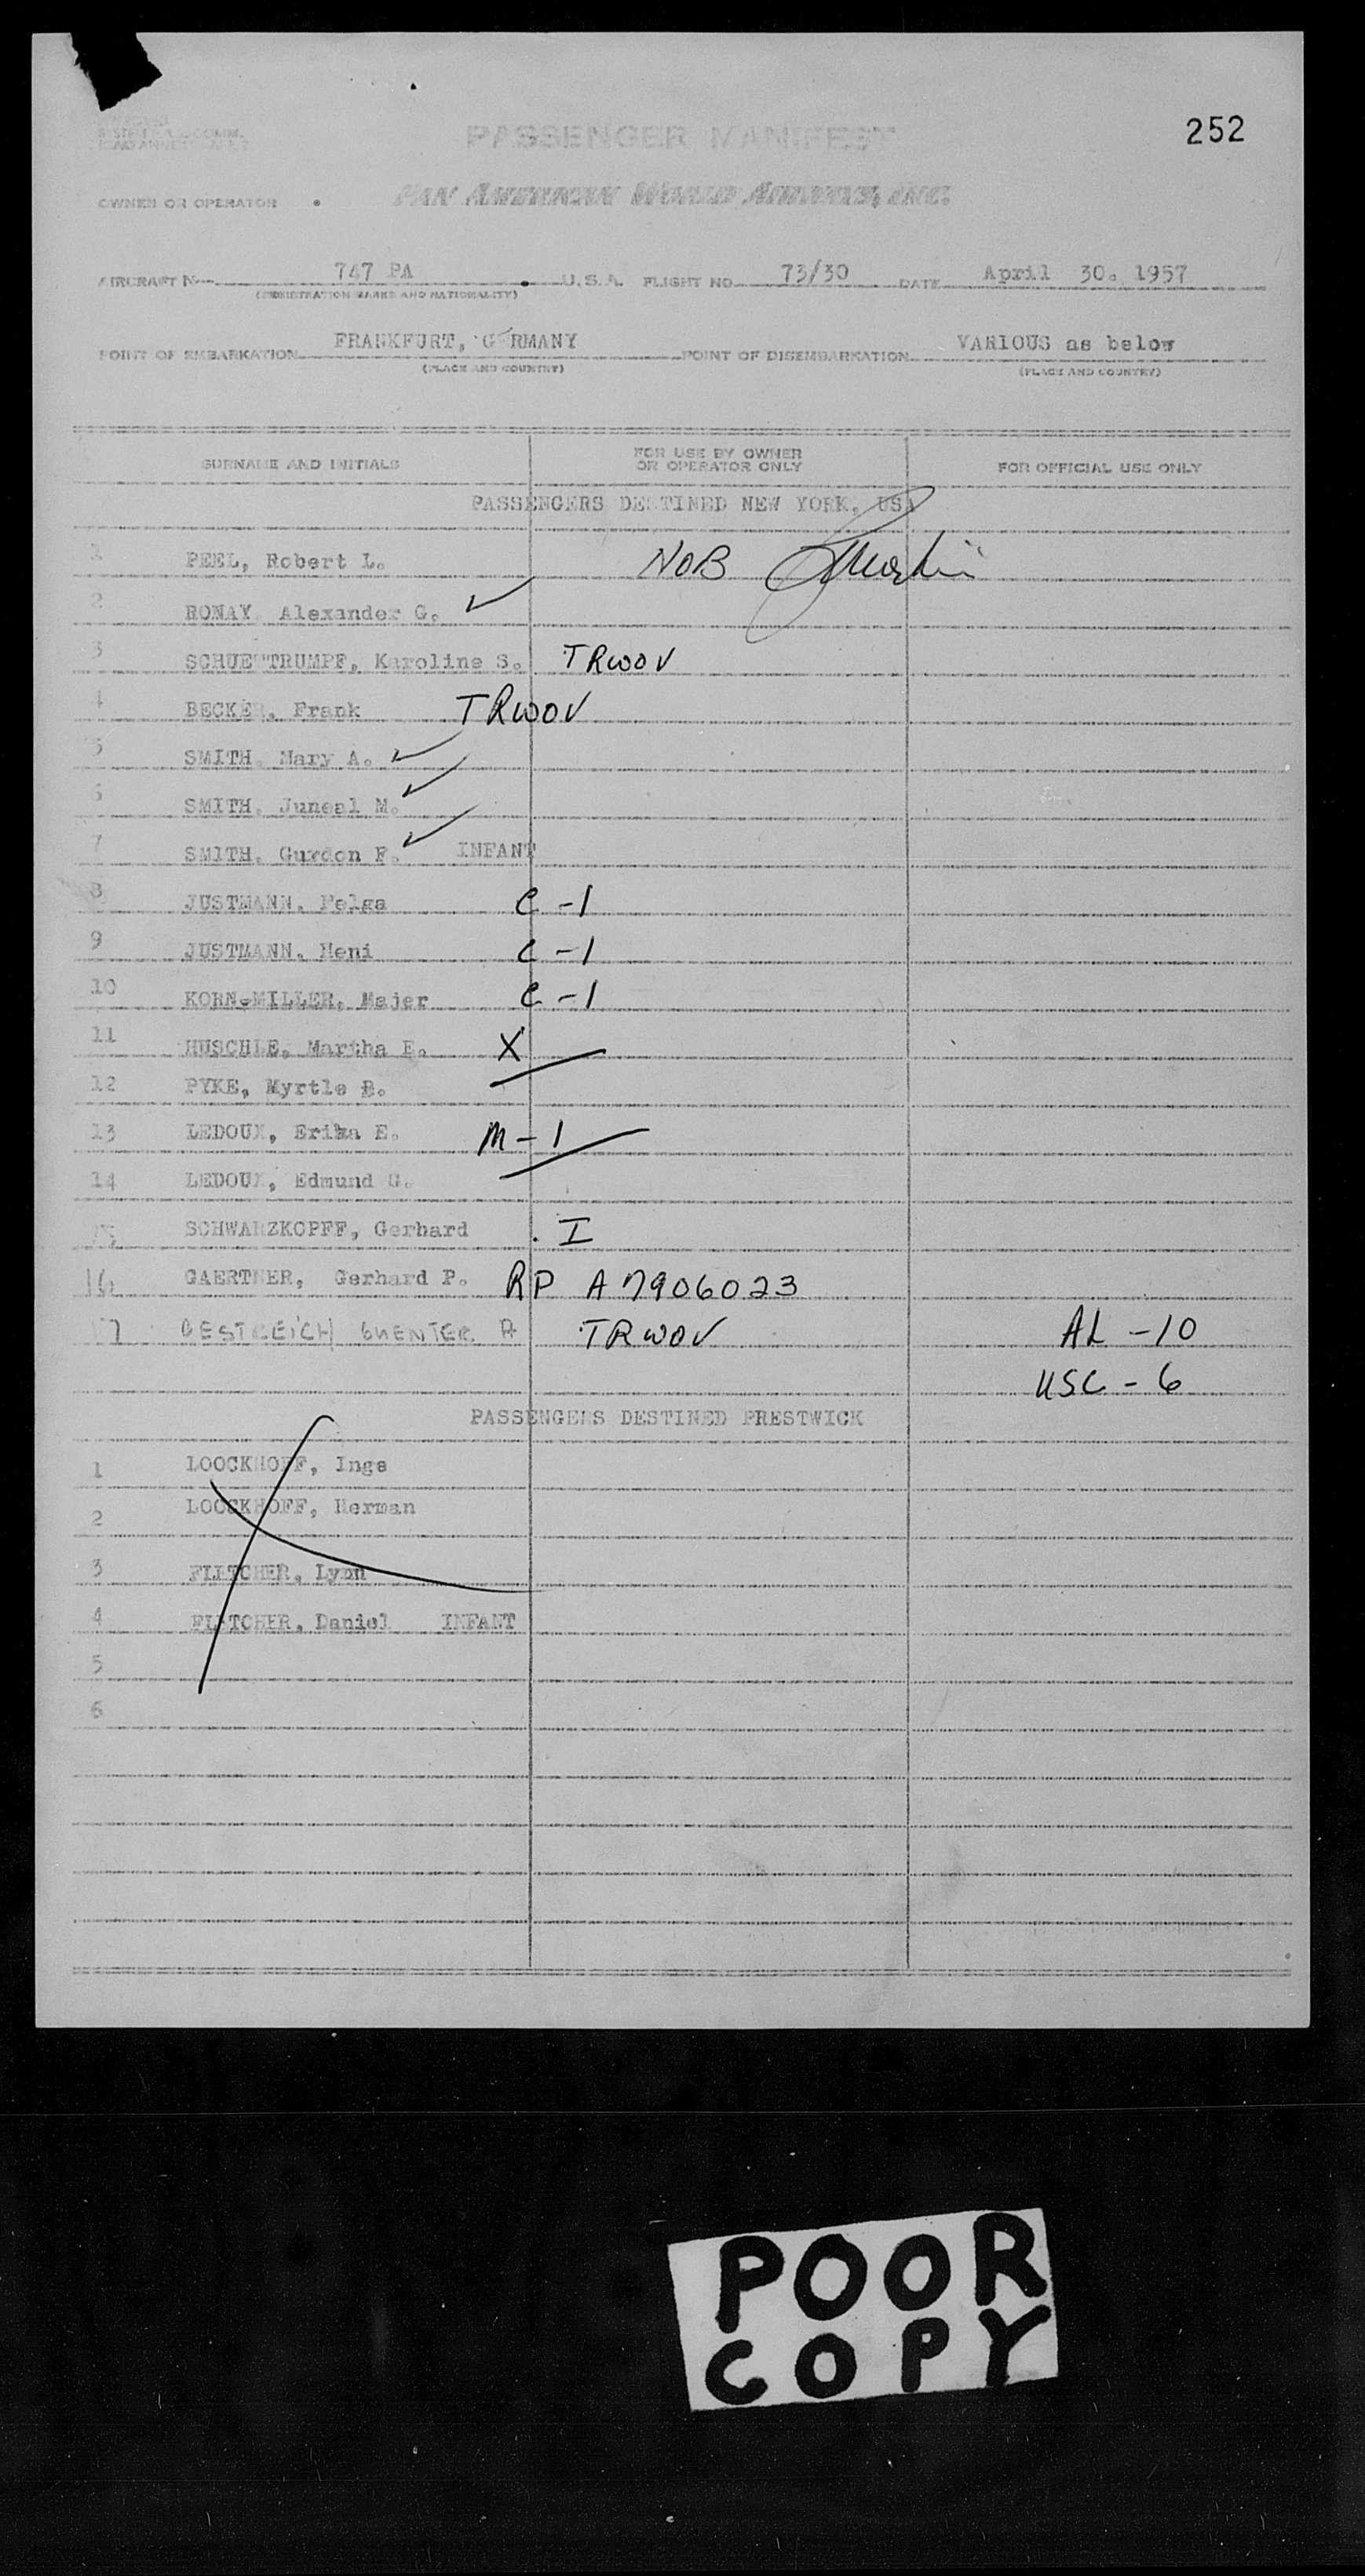 252
PASSENGER MANIFEST
OWNER OR OPERATOR
PAN AMERICAN WORLD AIRWAYS, INC.
AIRCRAFT N 747 PA U.S.A. FLIGHT NO. 73/30 DATE April 30. 1957
(REGISTRATION MARKS AND NATIONALITY)
POINT OF EMBARKATION FRANKFURT, GERMANY POINT OF DISEMBARKATION VARIOUS as below
(PLACE AND COUNTRY) (PLACE AND COUNTRY)
SURNAME AND INITIALS FOR USE BY OWNER OR OPERATOR ONLY FOR OFFICIAL USE ONLY
PASSENGERS DESTINED NEW YORK, USA
1 PEEL, Robert L. NOB
2 RONAY, Alexander G. ✓
3 SCHUETTRUMPF, Karoline S. TRWOV
4 BECKER, Frank TRWOV
5 SMITH, Mary A. ✓
6 SMITH, Juneal M. ✓
7 SMITH, Gurdon F. ✓ INFANT
8 JUSTMANN, Felga C-1
9 JUSTMANN, Heni C-1
10 KORN-MILLER, Majer C-1
11 HUSCHLE, Martha E. X
12 PYKE, Myrtle B.
13 LEDOUX, Erika E. M-1
14 LEDOUX, Edmund G.
15 SCHWARZKOPFF, Gerhard I
16 GAERTNER, Gerhard P. RP A7906023
17 OESTREICH GUENTER A TRWOV AL-10
USC-6
PASSENGERS DESTINED PRESTWICK
1 LOOCKHOFF, Inge
2 LOOCKHOFF, Herman
3 FLETCHER, Lynn
4 FLETCHER, Daniel INFANT
5
6
POOR
COPY